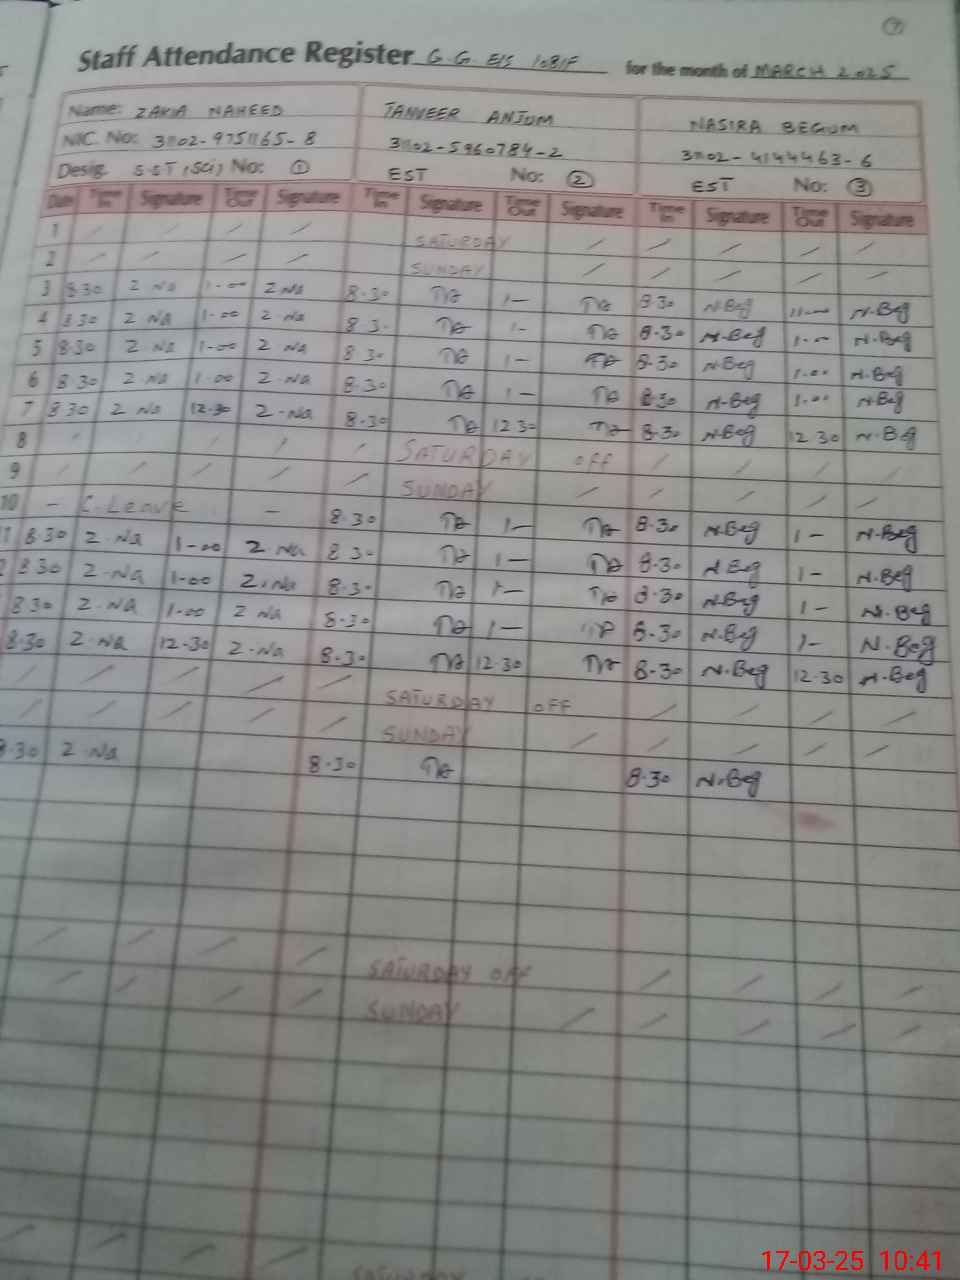 7
Staff Attendance Register G.G. E/S 108/F for the month of MARCH 2025
Name: ZAKIA NAHEED TANVEER ANJUM NASIRA BEGUM
NIC. No: 31102-9751165-8 31102-5960784-2 31102-4144463-6
Desig. S.S.T (Sci) No: 1 EST No: 2 EST No: 3
Date Time In Signature Time Out Signature Time In Signature Time Out Signature Time In Signature Time Out Signature
1 / / / / SATURDAY / / / / /
2 / / / / SUNDAY / / / / /
3 8.30 Z Na 1-00 Z Na 8.30 TA 1- TA 8.30 N.Beg N.Beg
4 8.30 Z Na 1-00 Z Na 8 3. TA 1- TA 8.30 N.Beg 1-00 N.Beg
5 8.30 Z Na 1-00 Z Na 8 30 TA 1- TA 8.30 N.Beg 1.00 N.Beg
6 8.30 Z Na 1.00 Z-Na 8.30 TA 1- TA 8.30 N.Beg 1-00 N.Beg
7 8.30 Z Na 12.30 Z-Na 8.30 TA 12 30 TA 8.30 N.Beg 12 30 N.Beg
8 / / / SATURDAY OFF / / / /
9 / / / / / SUNDAY / / / / /
10 - C.Leave - 8.30 TA 1- TA 8.30 N.Beg 1- N.Beg
8.30 Z.Na 1-00 Z.Na 8 30 TA 1- TA 8.30 N Beg 1- N.Beg
8 30 Z-Na 1-00 Z.Na 8.30 TA 1- TA 8.30 N.Beg 1- N.Beg
8.30 Z-Na 1-00 Z Na 8.30 TA 1- TA 8.30 N.Beg 1- N.Beg
8.30 Z-Na 12-30 Z-Na 8.30 TA 12.30 TA 8.30 N.Beg 12.30 N.Beg
/ / / / / SATURDAY OFF / / / /
/ / / / / SUNDAY / / / / /
8.30 Z-Na 8.30 TA 8.30 N.Beg
/ / / / SATURDAY OFF / / / /
/ / / / SUNDAY / / / / /
/ / / / SATURDAY
17-03-25 10:41